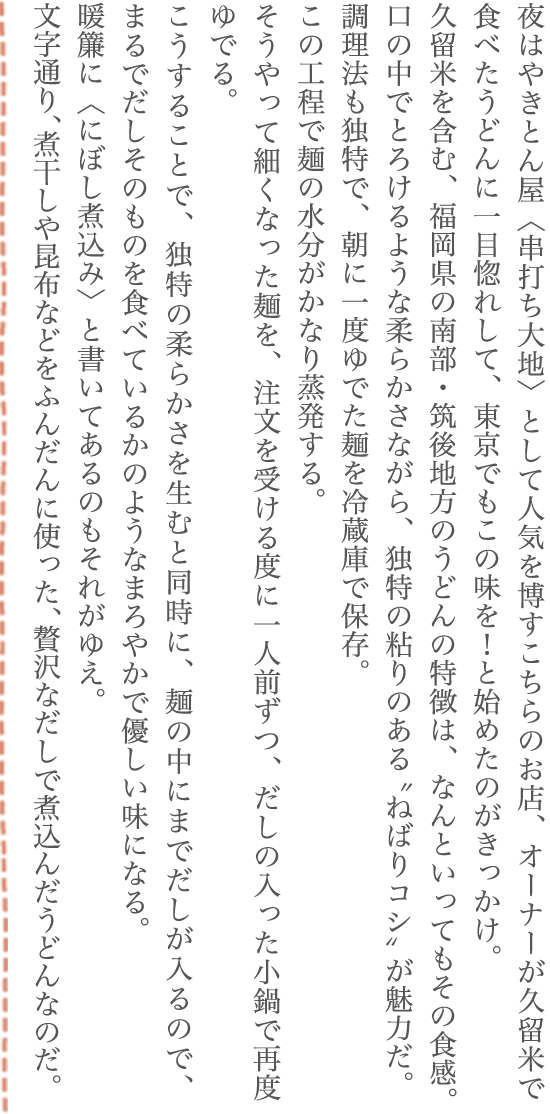 夜はやきとん屋〈串打ち大地〉として人気を博すこちらのお店、オーナーが久留米で
食べたうどんに一目惚れして、東京でもこの味を！と始めたのがきっかけ。
久留米を含む、福岡県の南部・筑後地方のうどんの特徴は、なんといってもその食感。
口の中でとろけるような柔らかさながら、独特の粘りのある〝ねばりコシ〟が魅力だ。
調理法も独特で、朝に一度ゆでた麺を冷蔵庫で保存。
この工程で麺の水分がかなり蒸発する。
そうやって細くなった麺を、注文を受ける度に一人前ずつ、だしの入った小鍋で再度
ゆでる。
こうすることで、独特の柔らかさを生むと同時に、麺の中にまでだしが入るので、
まるでだしそのものを食べているかのようなまろやかで優しい味になる。
暖簾に〈にぼし煮込み〉と書いてあるのもそれがゆえ。
文字通り、煮干しや昆布などをふんだんに使った、贅沢なだしで煮込んだうどんなのだ。